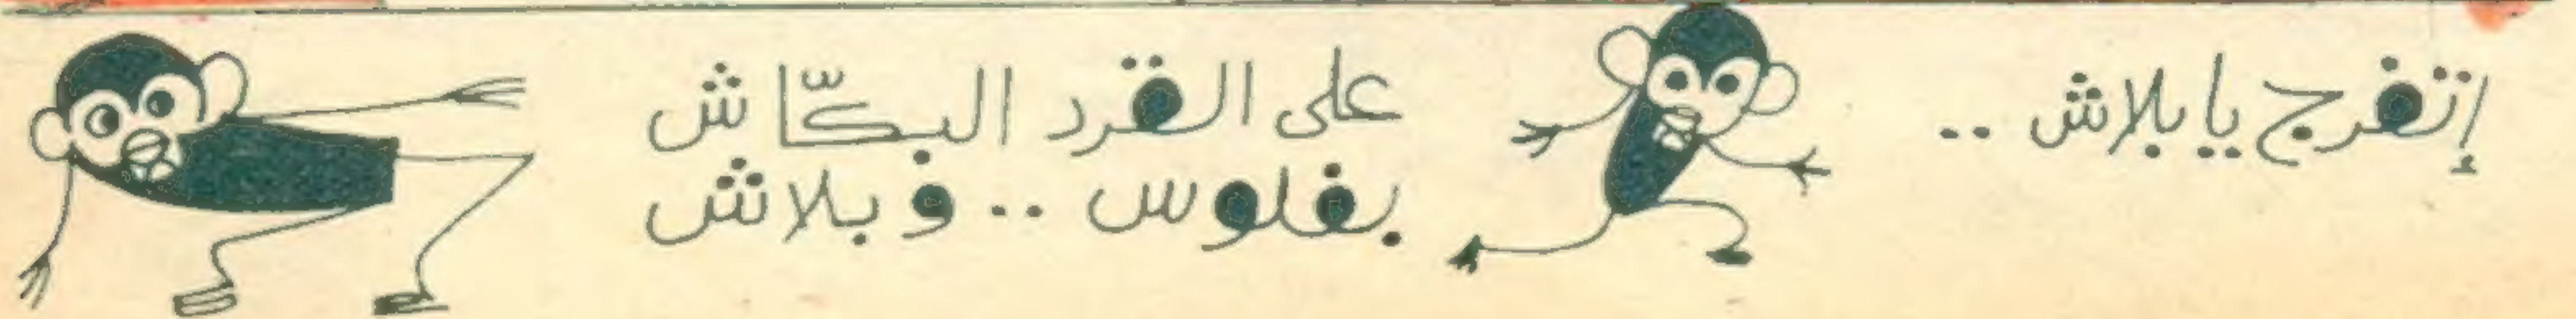 إتفرج يا بلاش ..
على القرد البكّاش
بفلوس .. و بلاش